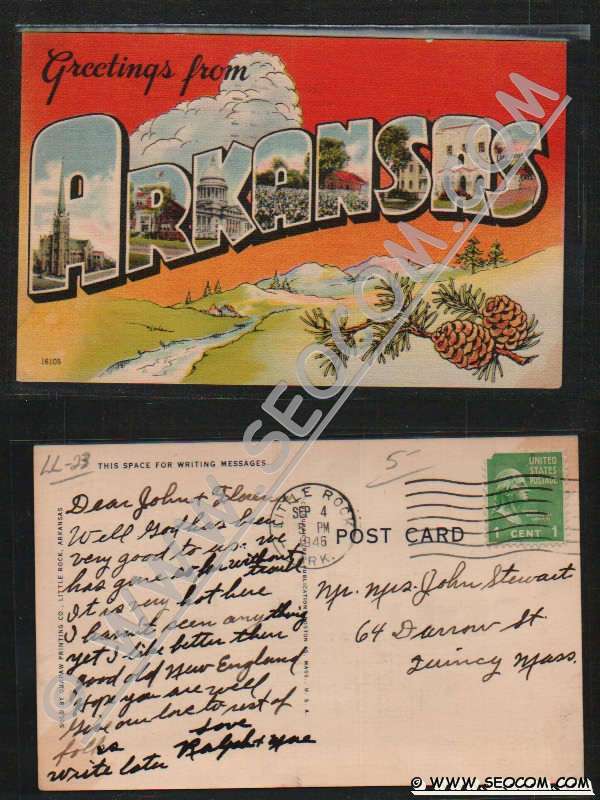 Greetings from
ARKANSAS
16105
© WWW.SEOCOM.COM
LL-23
THIS SPACE FOR WRITING MESSAGES
5-
LITTLE ROCK
SEP 4
PM
1946
ARK.
UNITED
STATES
POSTAGE
1 CENT 1
POST CARD
SOLD BY PRINTING CO., LITTLE ROCK, ARKANSAS
MASS., U. S. A.
Dear John &
Well God has been
very good to us. we
has gone so far without
trouble
It is very hot here
I hasn't seen anything
yet I like better then
good old New England
Hope you are well
Give our love to rest of
folks love
write later Ralph &
Mr. Mrs. John Stewart
64 Darrow St
Quincy Mass.
© WWW.SEOCOM.COM